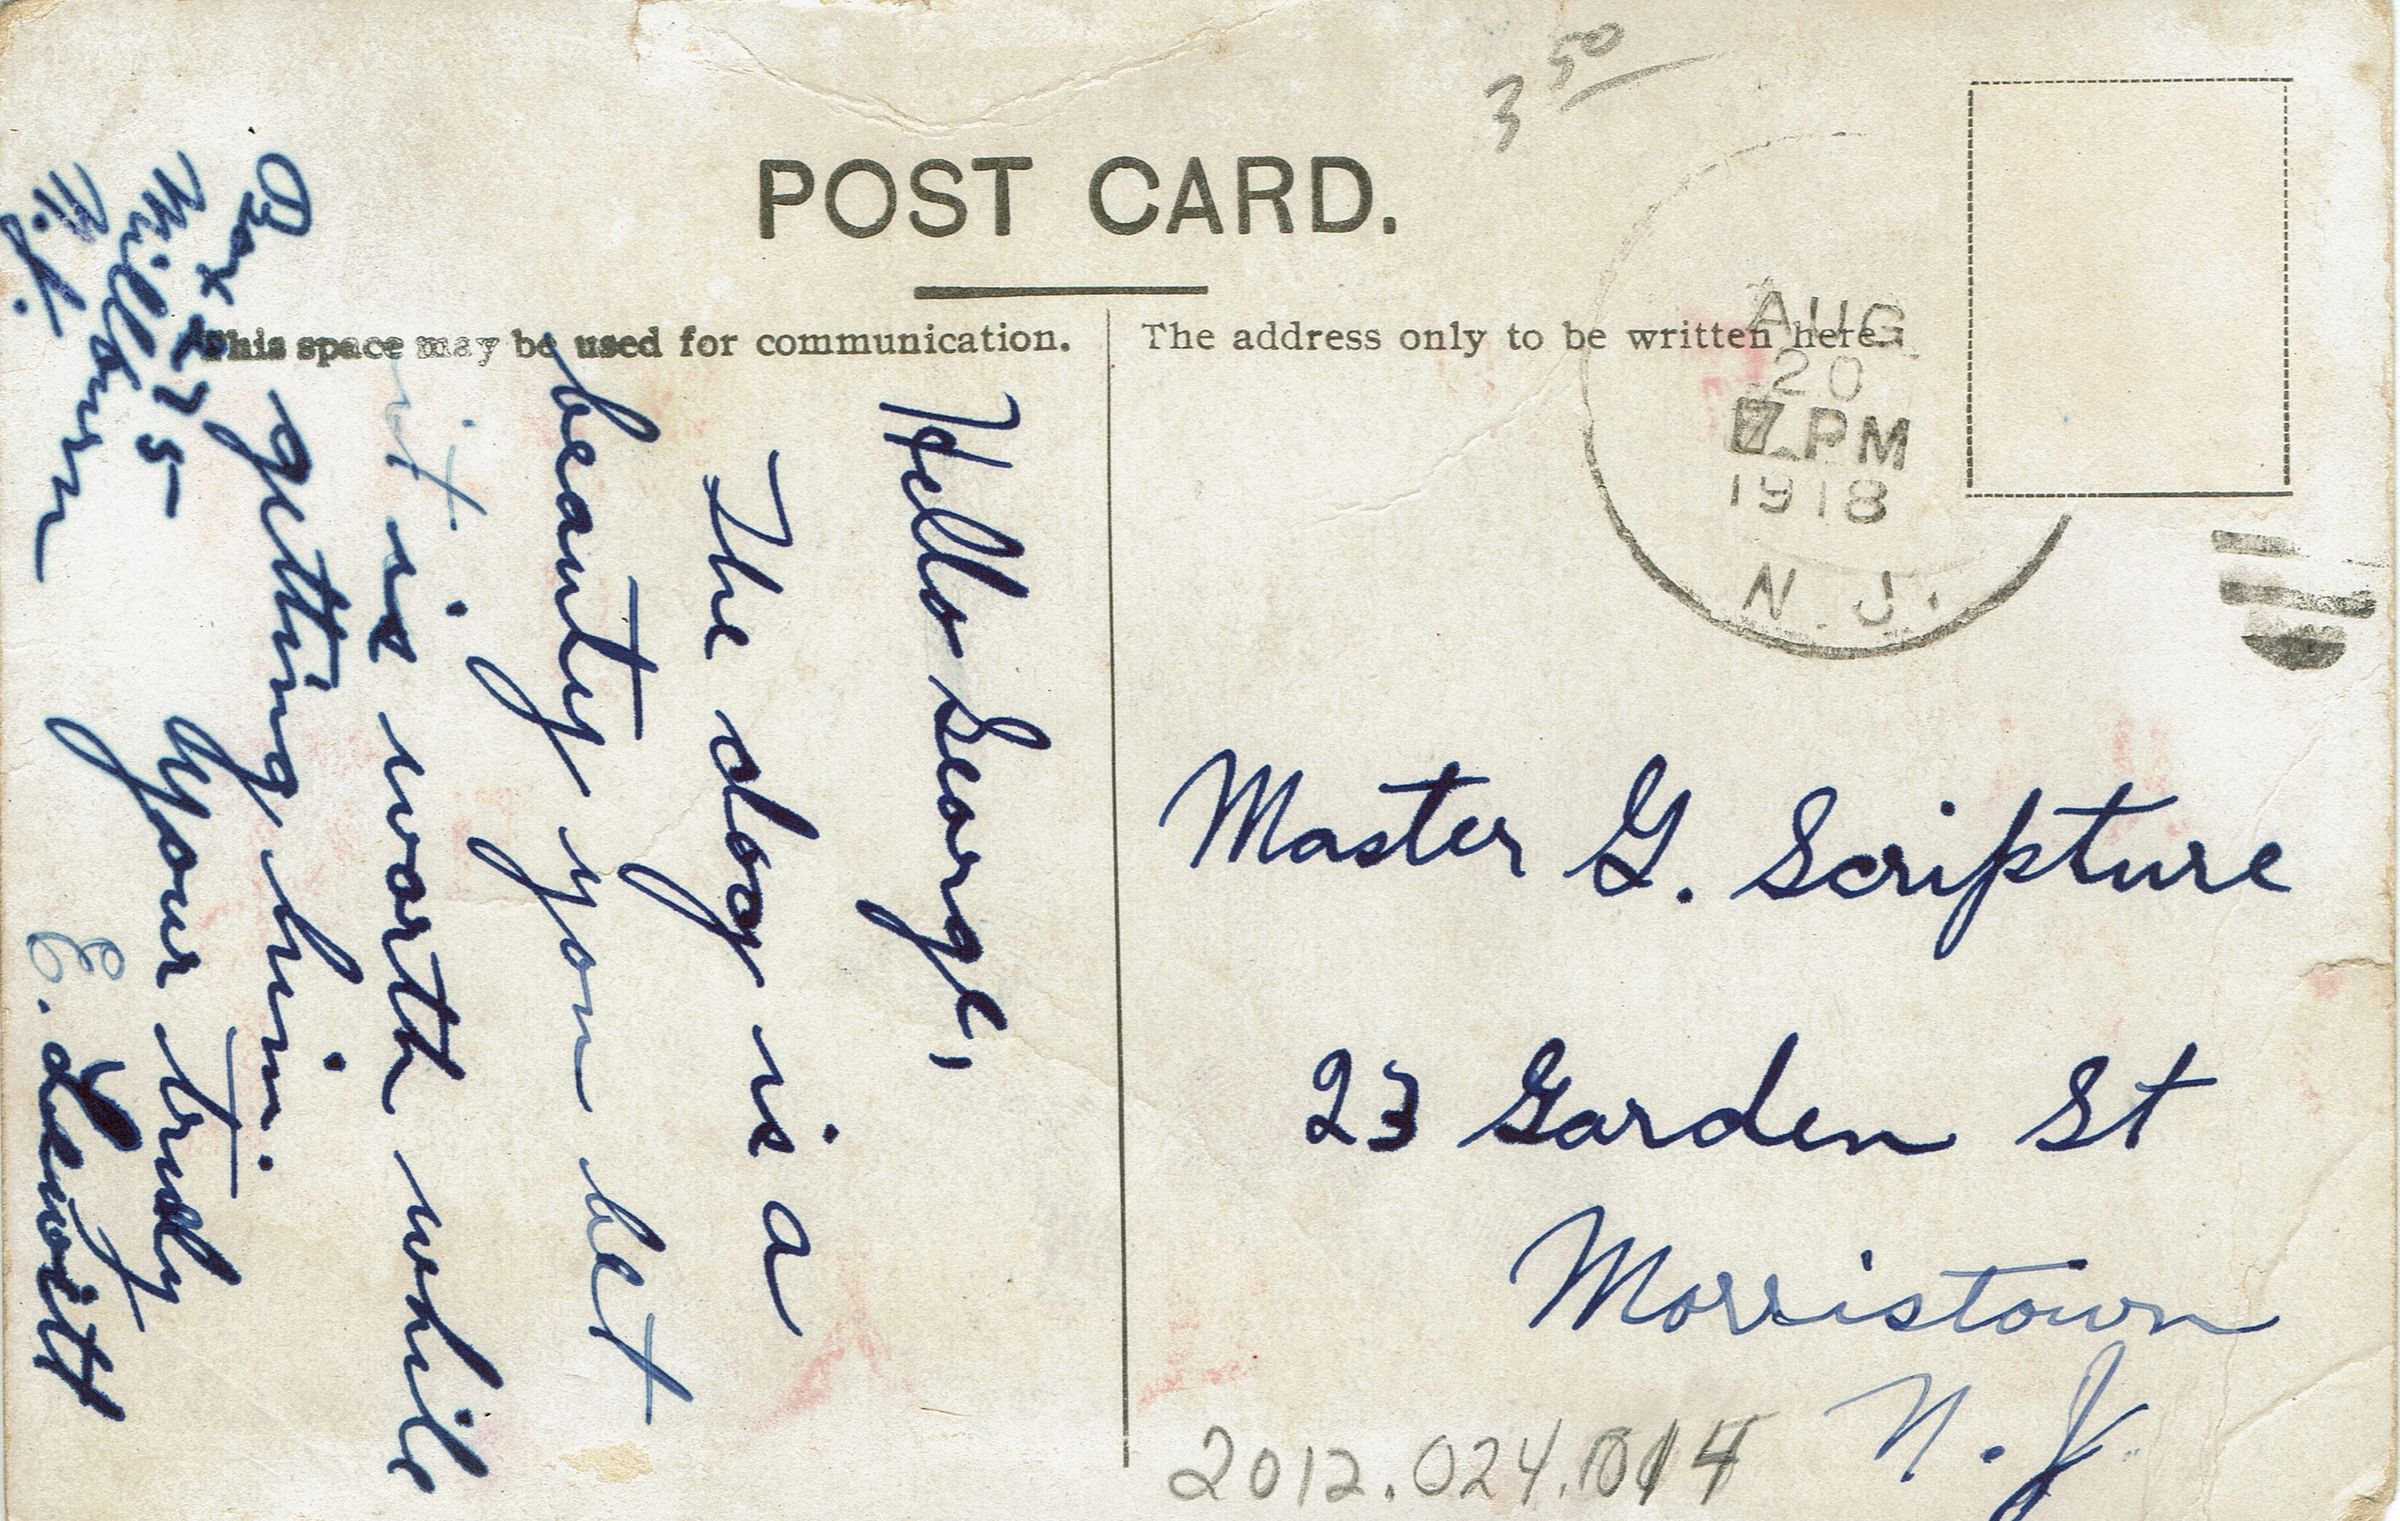 3 50
POST CARD.
This space may be used for communication.
The address only to be written here.
AUG
20
7 PM
1918
N.J.
Hello George,
The dog is a
beauty you bet
it is worth while
getting him.
Your truly
E. Dewitt
Box 275
Millburn
N.J.
Master G. Scripture
23 Garden St
Morristown
N.J.
2012.024.014